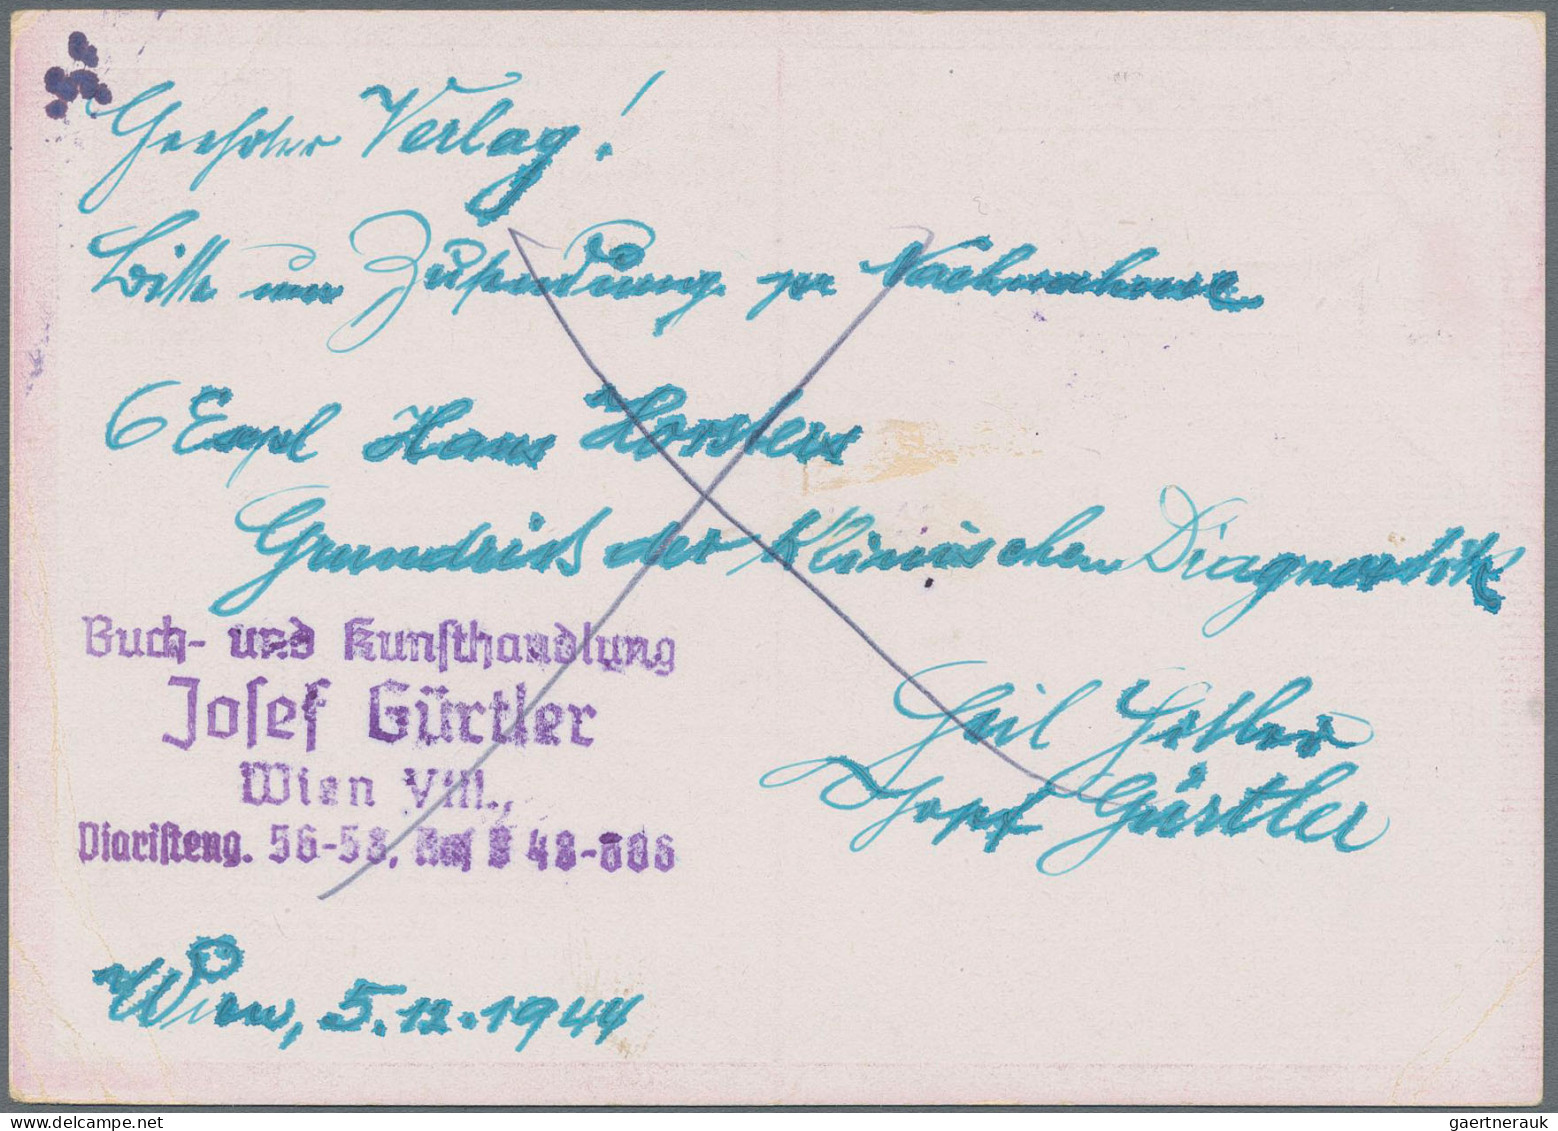 Geehrter Verlag!
Bitte um Zusendung per Nachnahme
6 Expl Hans Horsters
Grundriß der klinischen Diagnostik
Buch- und Kunsthandlung
Josef Gürtler
Wien VIII.,
Piaristeng. 56-58, Ruf B 48-
Heil Hitler
Josef Gürtler
Wien, 5.12.1944
gaertnerauk